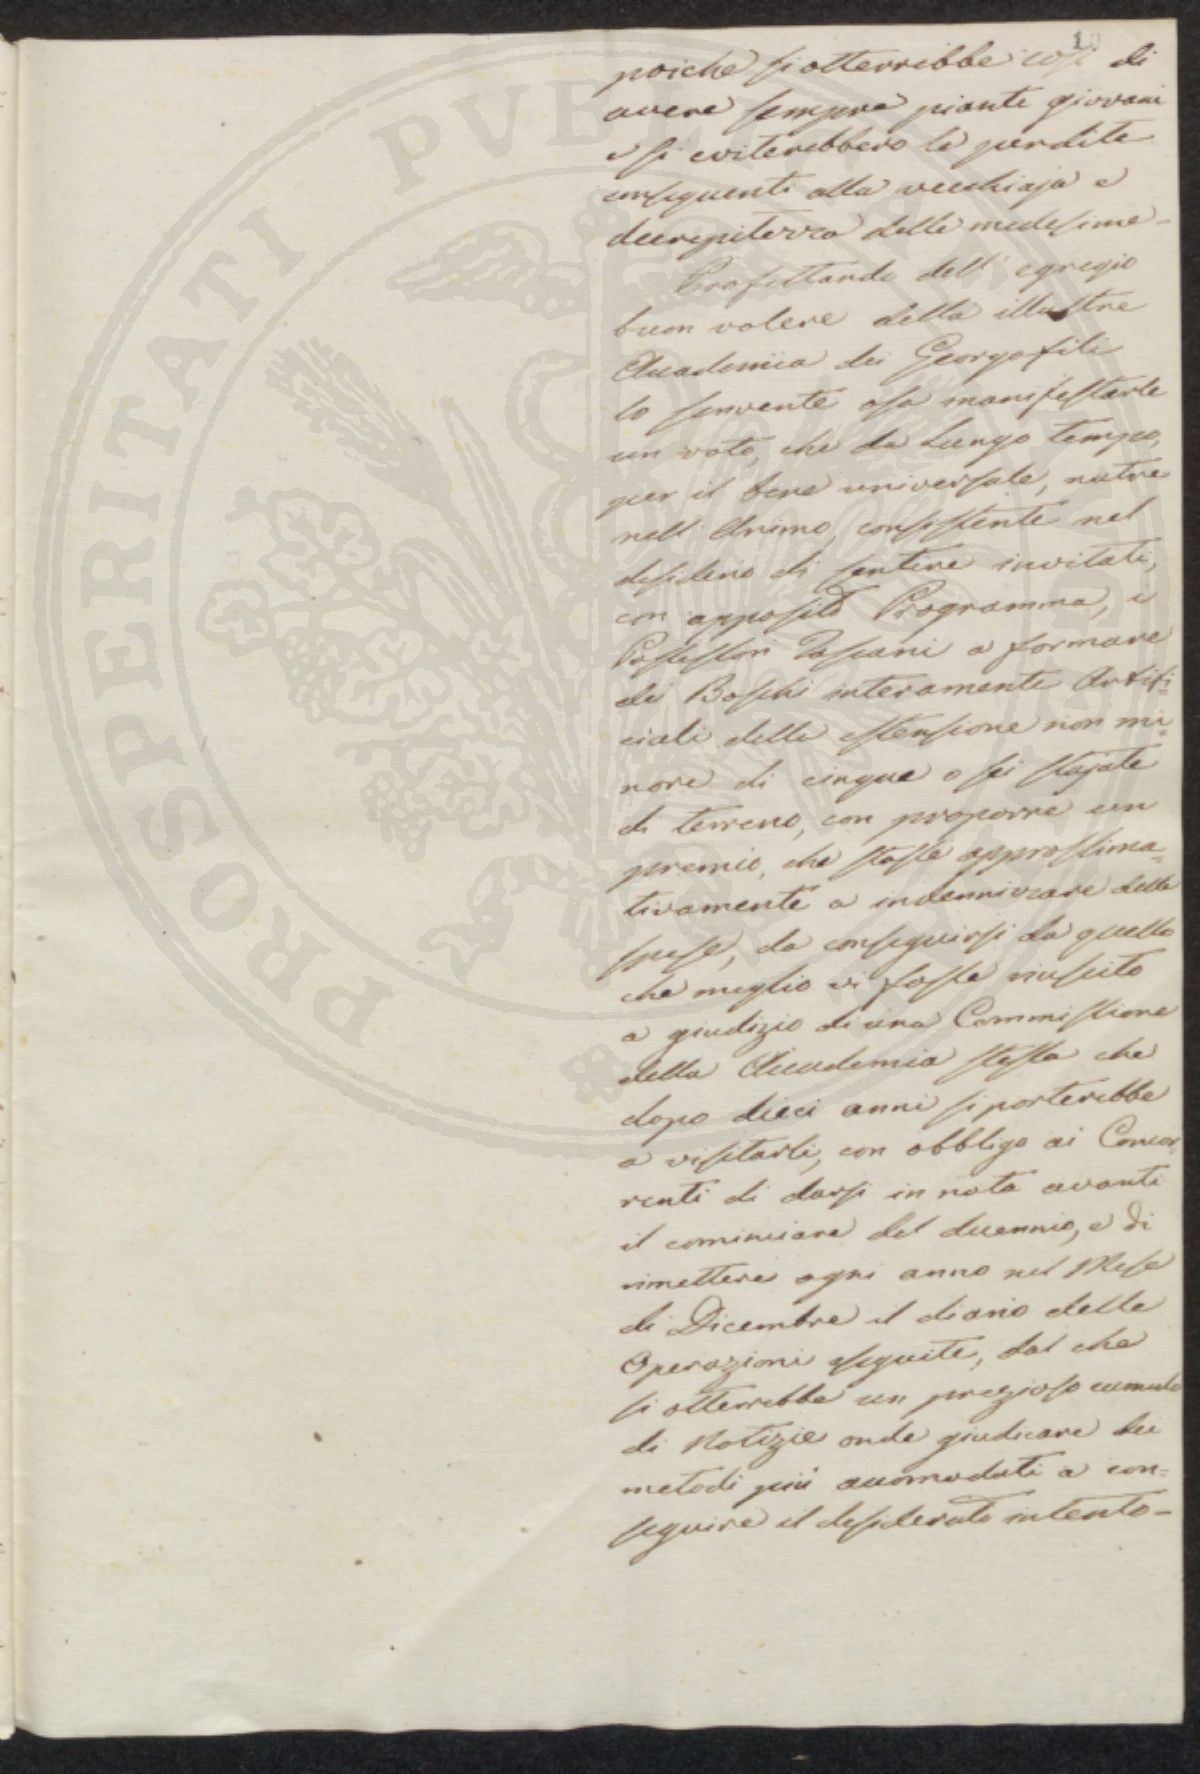 10
poiche si otterrebbe così di
avere sempre piante giovani
e si eviterebbero le perdite
conseguenti alla vecchiaja e
decrepitezza delle medesime -
Profittando dell' egregio
buon volere della illustre
Accademia dei Georgofili
lo scrivente osa manifestarle
un voto, che da Lungo tempo,
per il bene universale, nutre
nell' Animo, consistente nel
desiderio di sentire invitati,
con apposito Programma, i
Possessori Toscani a formare
dei Boschi interamente Artifi=
ciali della estensione non mi=
nore di cinque o sei stajate
di terreno, con proporre un
premio, che stasse approssima=
tivamente a indennizzare delle
spese, da conseguirsi da quello
che meglio vi fosse riuscito
a giudizio di una Commissione
della Accademia stessa che
dopo dieci anni si porterebbe
a visitarli, con obbligo ai Concor=
renti di darsi in nota avanti
il cominciare del duennio, e di
rimettere ogni anno nel Mese
di Dicembre il diario delle
Operazioni eseguite, dal che
si otterrebbe un prezioso cumulo
di Notizie onde giudicare dei
metodi più accomodati a con=
seguire il desiderato intento -
PROSPERITATI PVBLICAE